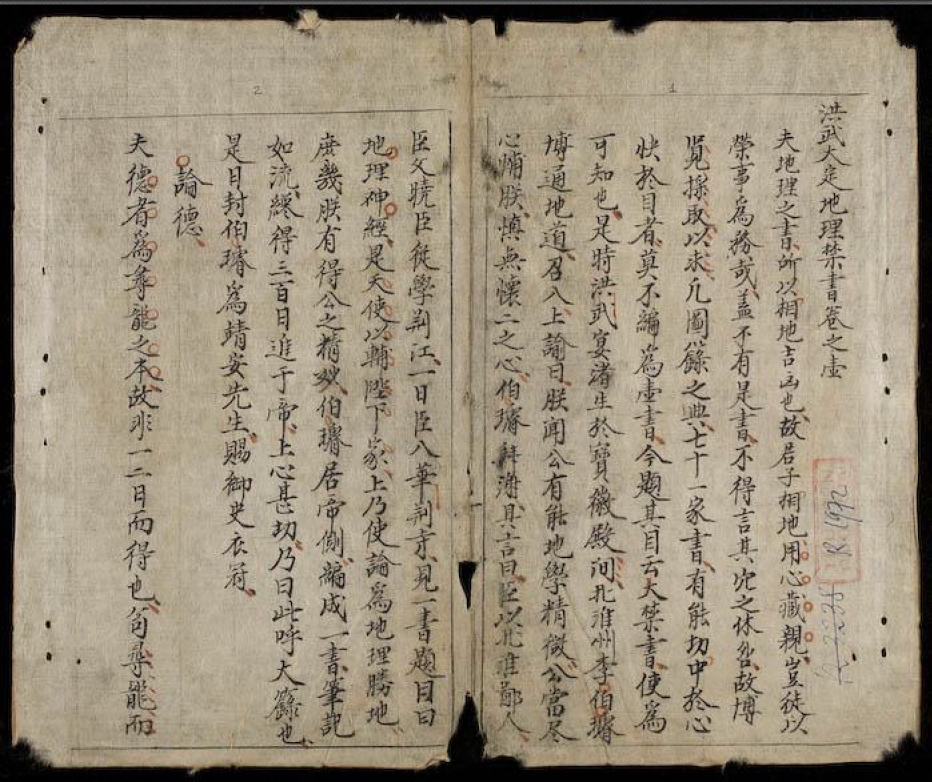 洪武大定地理禁書卷之壹
夫地理之書所以相地吉凶也故君子相地用心藏親豈徒以
榮事為務哉盖不有是書不得言其穴之休咎故博
覓採取以求凡圖籙之典七十一家書有能切中於心
快於目者莫不編為壹書今題其目云大禁書使為
可知也是時洪武宴渚生於寶徽殿洞北淮州李伯璿
博通地道召入上諭曰朕聞公有能地學精微公當尽
心輔朕慎無懷二之心伯璿拜謝具言曰臣以北淮鄙人
臣父曉臣從學荆江一日臣入華荆寺見一書題目曰
地理神經是天使以輔陛下家上乃使論為地理勝地
庶幾朕有得公之精妙伯璿居帝側編成一書筆記
如流纔得三百日進于帝上心甚切乃曰此呼大籙也
是日封伯璿為靖安先生賜御史衣冠
論德
夫德者為尋龍之本故非一二日而得也苟尋龍而
1
2
R.1692